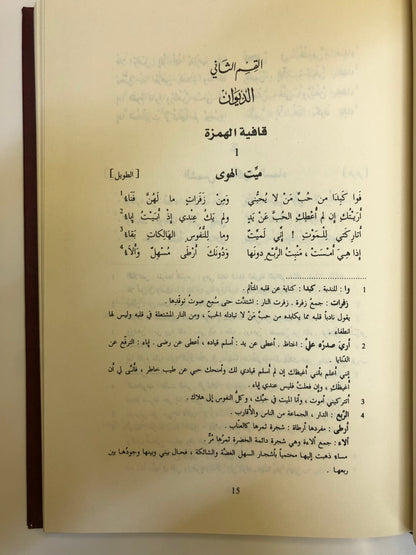 القسم الثاني
الديوان
قافية الهمزة
1
ميّت الهوى
[الطويل]
فَوا كَبِدَا من حُبِّ مَنْ لا يُحبُّني ومِنْ زَفَراتٍ ما لَهُنَّ فَنَاءُ 1
أرَيْتَكِ إن لم أُعْطِكِ الحُبَّ عَنْ يَدٍ ولم يَكُ عندي إذ أبَيْتُ إباءُ 2
أتارِكَتي لِلْمَوْتِ ! إنّي لَميّتٌ وما لِلنُّفُوسِ الهَالِكاتِ بَقاءُ 3
إذا هيَ أمْسَتْ، مَنْبِتُ الرَّبْعِ دونَها ودُونَكَ أرْطَى مُسْهِلٌ وألاءُ 4
1 وا : للندبة. كبدا : كناية عن قلبه المتألّم.
زفرات : جمع زفرة. زفرت النار : اشتدّت حتى سُمِع صوتُ توقّدها.
يقول نادباً قلبه مما يكابده من حبّ مَنْ لا تبادله الحبّ، ومن النار المشتعلة في قلبه وليس لها
انطفاء.
2 أرى صدره عليّ : اغتاظ. أعطى عن يد : أسلم قياده، أعطى عن رضى. إباء : الترفّع عن
الدنايا.
إني أعلم بأني أغيظك إن لم أسلم قيادي لك وأمنحك حبي عن طيب خاطر، فأنّى لي أن
أغيظك، وإن فعلتُ فليس عندي إباء.
3 أتتركيني أموت، وأنا الميت في حبّك، وكلّ النفوس إلى هلاك.
4 الرَّبْع : الدار، الجماعة من الناس والأقارب.
أرطى : مفردها أرطاة : شجرة ثمرها كالعنّاب.
ألاء : جمع ألاءة وهي شجرة دائمة الخضرة ثمرها مُرٌّ.
مساء ذهبت إليها محتمياً بأشجار السهل الغضّة والشائكة، فحال بيني وبينها وجودُها بين
ربعها.
15